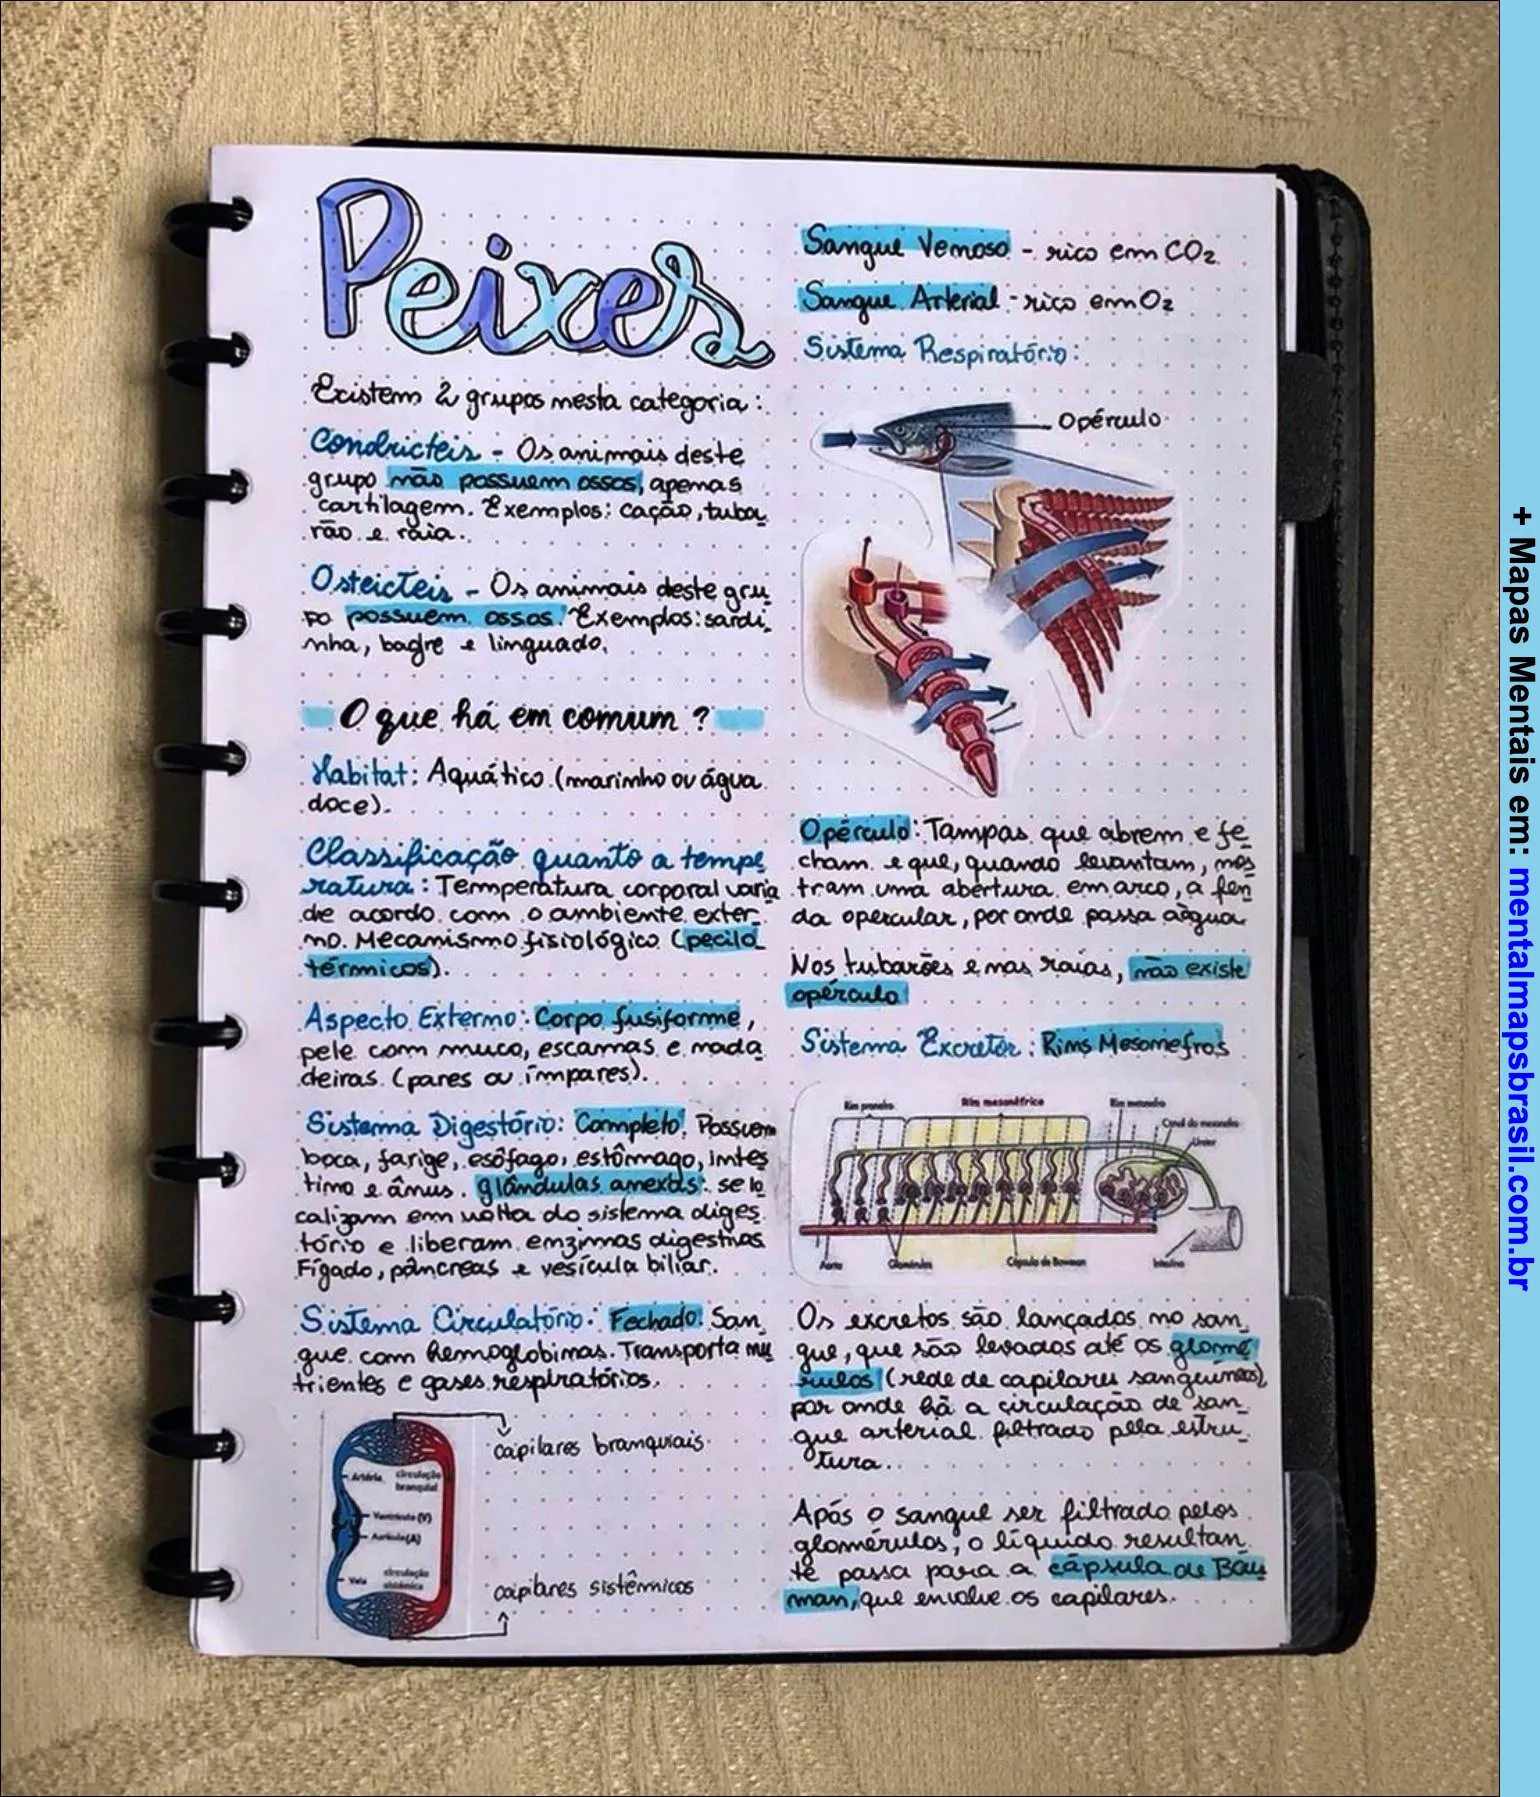 Peixes
Existem 2 grupos nesta categoria:
Condricteis - Os animais deste
grupo não possuem ossos, apenas
cartilagem. Exemplos: cação, tuba
rão e raia.
Osteicteis - Os animais deste gru
po possuem ossos. Exemplos: sardi
nha, bagre e linguado.
O que há em comum?
Habitat: Aquático (marinho ou água
doce).
Classificação quanto a tempe
ratura: Temperatura corporal varia
de acordo com o ambiente exter
no. Mecanismo fisiológico (pecilo
térmicos).
Aspecto Externo: Corpo fusiforme,
pele com muco, escamas e nada
deiras (pares ou ímpares).
Sistema Digestório: Completo. Possuem
boca, farige, esôfago, estômago, intes
tino e ânus. glândulas anexas: se lo
calizam em volta do sistema diges
tório e liberam enzimas digestivas
Fígado, pâncreas e vesícula biliar.
Sistema Circulatório: Fechado. San
gue com hemoglobinas. Transporta nu
trientes e gases respiratórios.
capilares branquiais
Artéria
circulação
branquial
Ventrículo (V)
Aurícula (A)
Veia
circulação
sistêmica
capilares sistêmicos
Sangue Venoso - rico em CO2
Sangue Arterial - rico em O2
Sistema Respiratório:
Opérculo
Opérculo: Tampas que abrem e fe
cham e que, quando levantam, mos
tram uma abertura em arco, a fen
da opercular, por onde passa a água
Nos tubarões e nas raias, não existe
opérculo
Sistema Excretor: Rins Mesonefros
Rim pronefro
Rim mesonéfrico
Rim metanefro
Canal do mesonefro
Ureter
Aorta
Glomérulos
Cápsula de Bowman
Intestino
Os excretos são lançados no san
gue, que são levados até os glomé
rulos (rede de capilares sanguíneos),
por onde há a circulação de san
gue arterial filtrado pela estru
tura.
Após o sangue ser filtrado pelos
glomérulos, o líquido resultan
te passa para a cápsula de Bow
man, que envolve os capilares.
+ Mapas Mentais em: mentalmapsbrasil.com.br